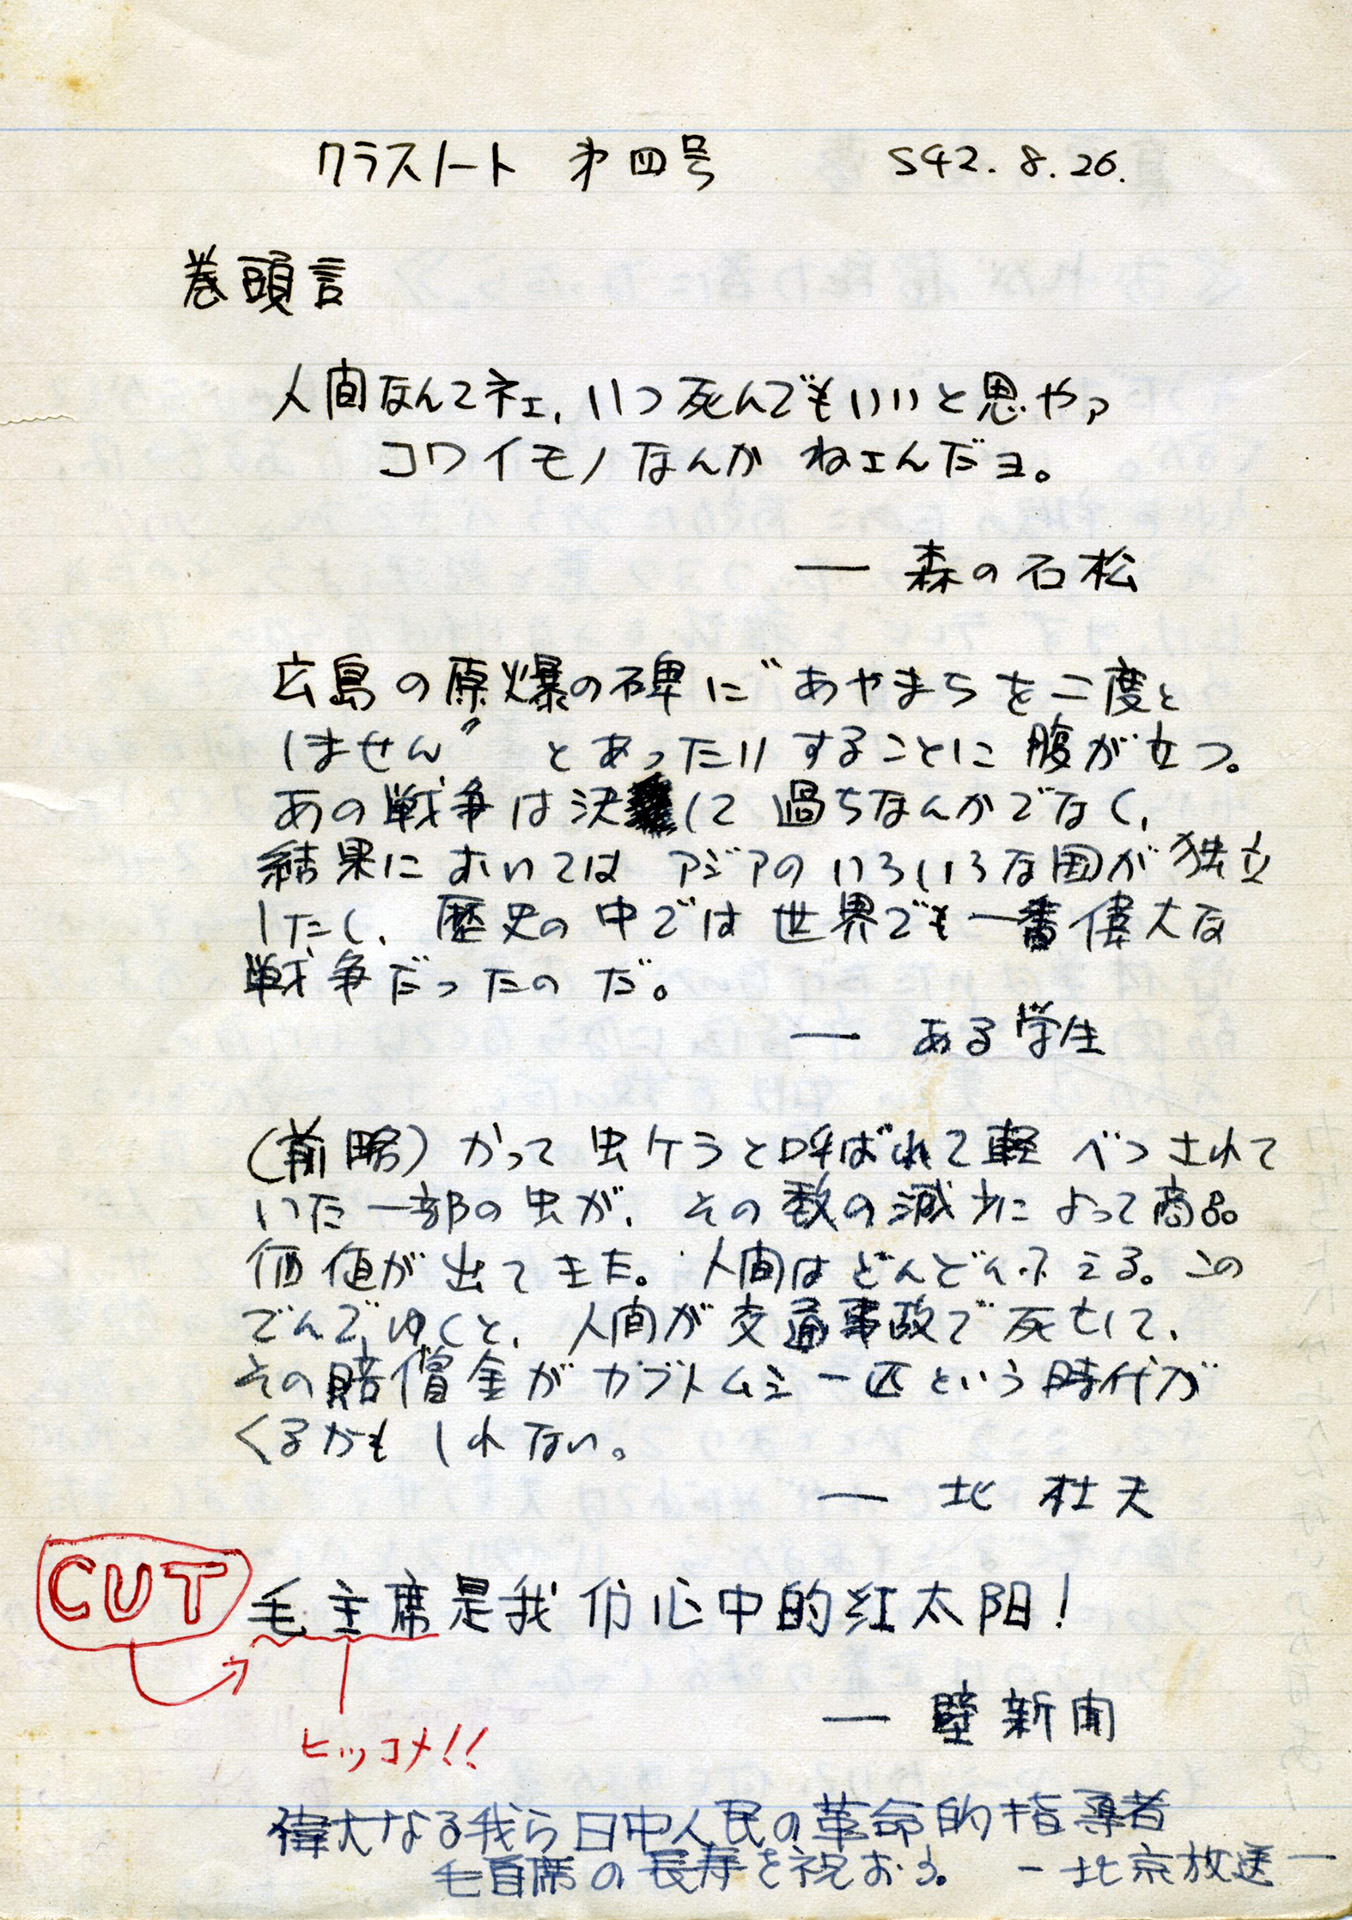 クラスノート 才四号 S42.8.26.
巻頭言
人間なんてネェ、いつ死んでもいいと思やァ
コワイモノなんか ねェんだヨ。
— 森の石松
広島の原爆の碑に"あやまちを二度と
しません" とあったりすることに腹が立つ。
あの戦争は決して過ちなんかでなく、
結果においてはアジアのいろいろな国が独立
したし、歴史の中では世界でも一番偉大な
戦争だったのだ。
— ある学生
(前略)かって虫ケラと呼ばれて軽べつされて
いた一部の虫が、その数の減少によって商品
価値が出てきた。人間はどんどんふえる。この
でんでゆくと、人間が交通事故で死亡して、
その賠償金がカブトムシ一匹という時代が
くるかもしれない。
— 北 杜夫
CUT 毛主席是我们心中的红太阳!
— 壁新聞
ヒッコメ!!
偉大なる我ら日中人民の革命的指導者
毛首席の長寿を祝おう。 —北京放送—